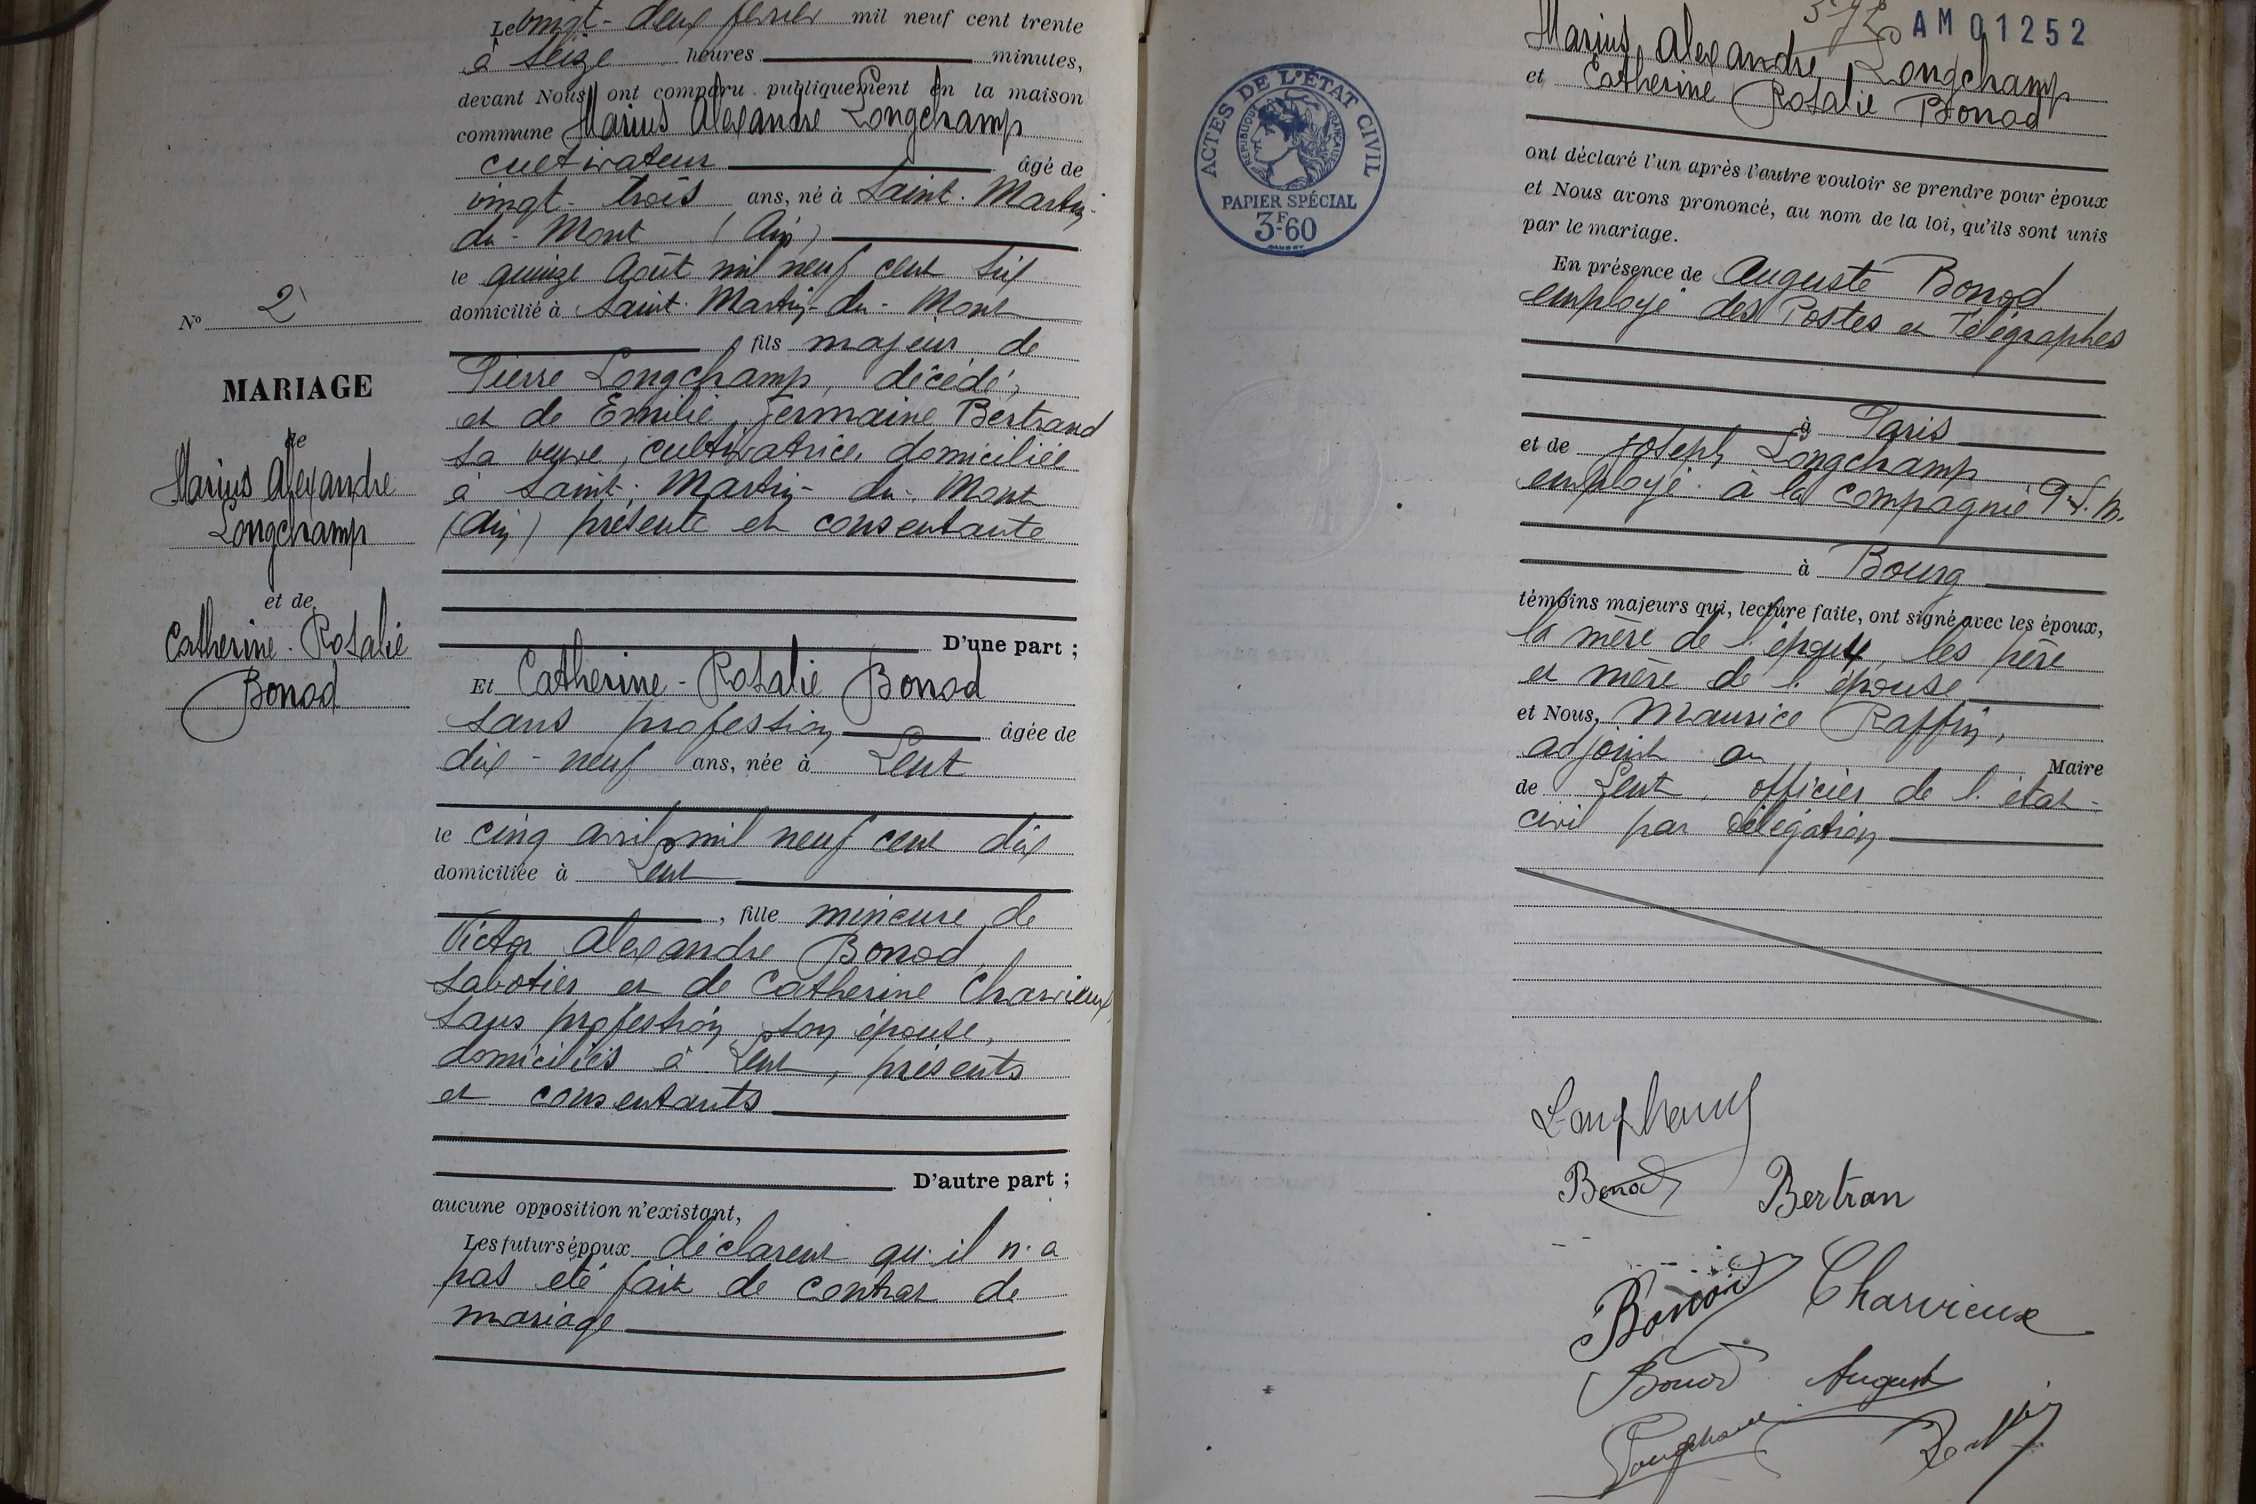 Le vingt-deux février mil neuf cent trente
à seize heures minutes,
devant Nous ont comparu publiquement en la maison
commune Marius Alexandre Longchamp
cultivateur âgé de
vingt-trois ans, né à Saint-Martin-
du-Mont (Ain)
le quinze Août mil neuf cent six
domicilié à Saint-Martin-du-Mont
, fils majeur de
Pierre Longchamp, décédé,
et de Emilie Germaine Bertrand
sa veuve, cultivatrice domiciliée
à Saint-Martin-du-Mont
(Ain) présente et consentante
D'une part ;
Et Catherine-Rosalie Bonod
sans profession âgée de
dix-neuf ans, née à Lent
le cinq avril mil neuf cent dix
domiciliée à Lent
, fille mineure de
Victor Alexandre Bonod,
sabotier et de Catherine Charvieux,
sans profession, son épouse,
domiciliés à Lent, présents
et consentants
D'autre part ;
aucune opposition n'existant,
Les futurs époux déclarent qu'il n'a
pas été fait de contrat de
mariage
N° 2
MARIAGE
de
Marius Alexandre
Longchamp
et de
Catherine-Rosalie
Bonod
AM 01252
ACTES DE L'ÉTAT CIVIL
RÉPUBLIQUE FRANÇAISE
PAPIER SPÉCIAL
3F.60
Marius Alexandre Longchamp
et Catherine Rosalie Bonod
ont déclaré l'un après l'autre vouloir se prendre pour époux
et Nous avons prononcé, au nom de la loi, qu'ils sont unis
par le mariage.
En présence de Auguste Bonod
employé des Postes et Télégraphes
à Paris
et de Joseph Longchamp
employé à la compagnie P.L.M.
à Bourg
témoins majeurs qui, lecture faite, ont signé avec les époux,
la mère de l'époux, les père
et mère de l'épouse
et Nous, Maurice Raffin,
adjoint au Maire
de Lent, officier de l'état-
civil par délégation
Longchamp
Bonod Bertran
Bonod Charvieux
Bonod August
Longchamp Raffin